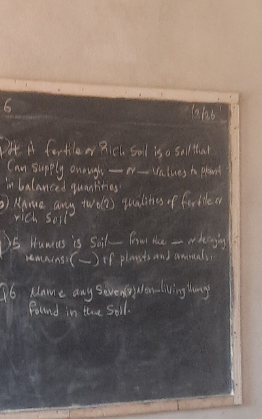 6
4 A fertile or Rich Soil is a Soil that
Can Supply enough — or — Values to plant
in balanced quantities.
b) Name any two(2) qualities of fertile or
rich Soil
5 Humus is Soil — from the — or decaying
remains (—) of plants and animals.
Q6 Name any Seven(7) Non-living things
found in the Soil.